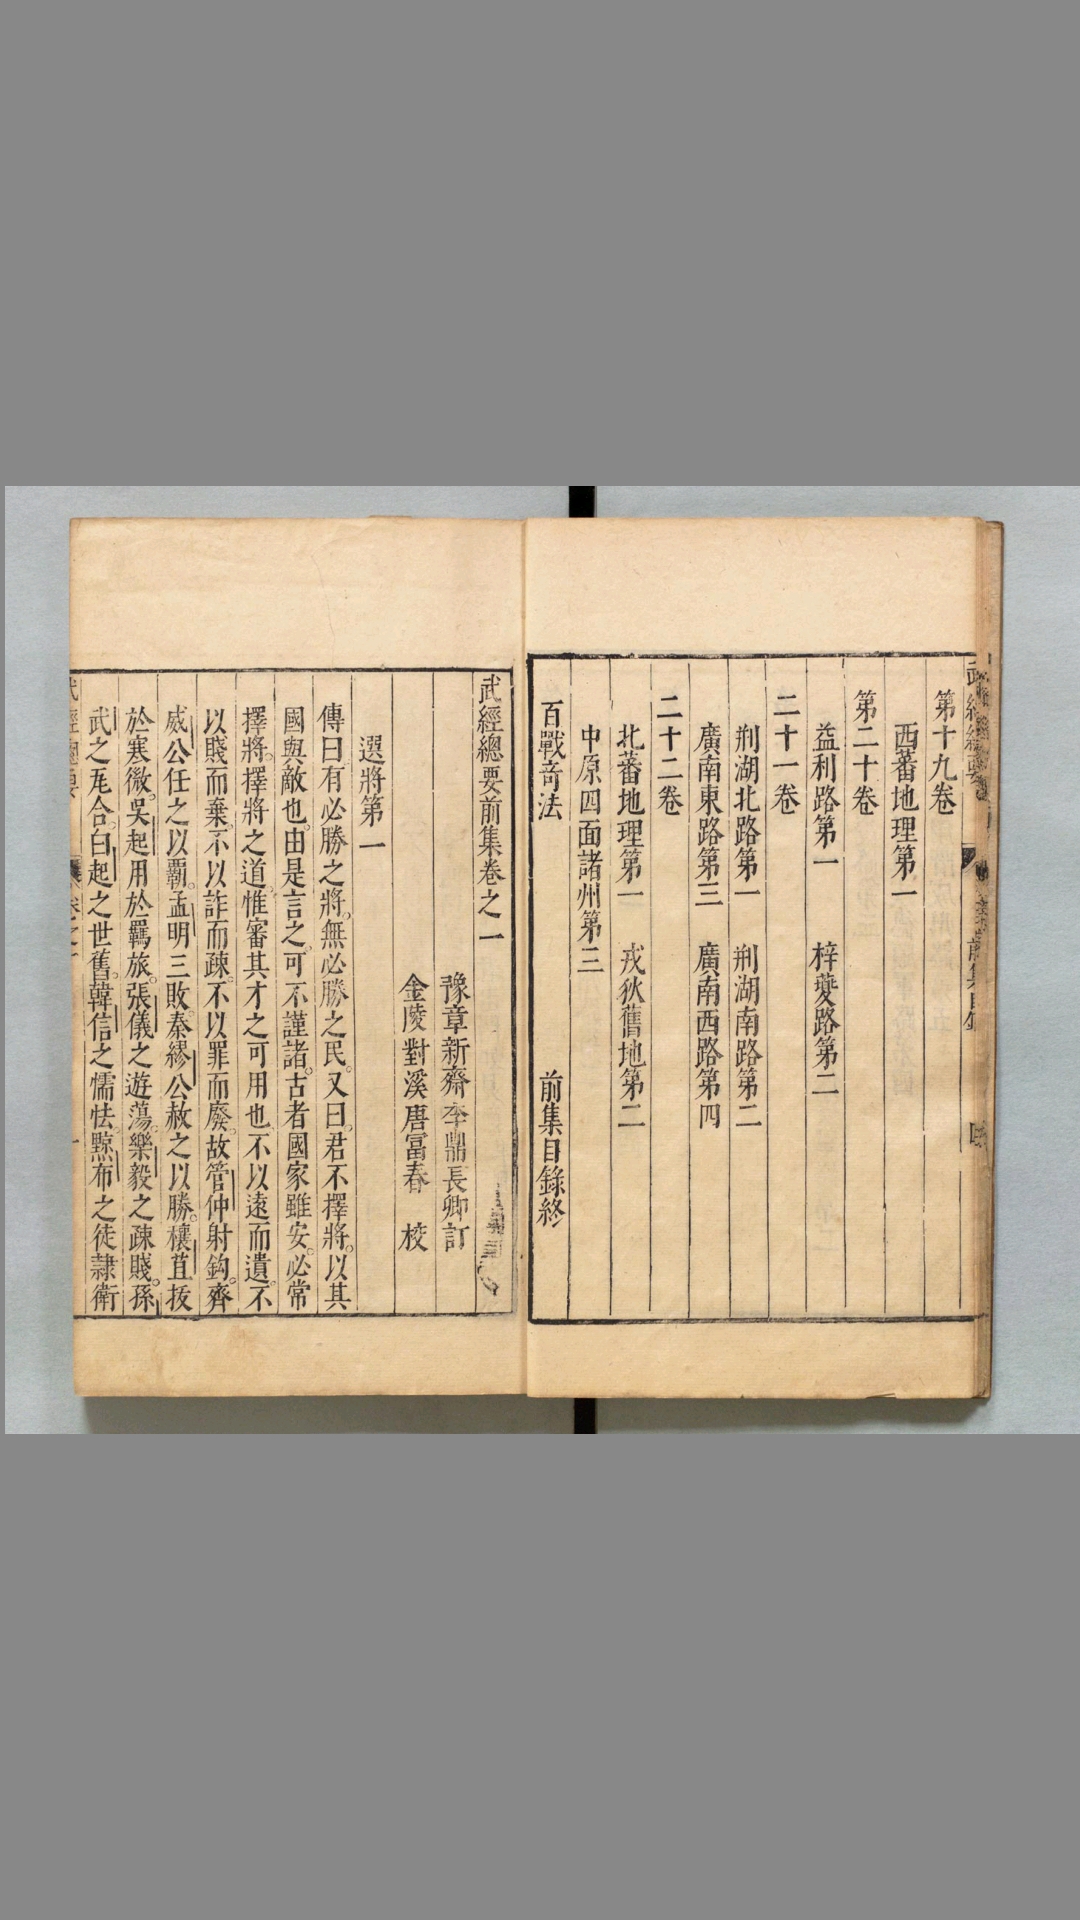 第十九卷
西蕃地理第一
第二十卷
益利路第一 梓夔路第二
二十一卷
荆湖北路第一 荆湖南路第二
廣南東路第三 廣南西路第四
二十二卷
北蕃地理第一 戎狄舊地第二
中原四面諸州第三
百戰奇法 前集目錄終
武經總要前集卷之一
豫章新齋李鼎長卿訂
金陵對溪唐富春 校
選將第一
傳曰有必勝之將。無必勝之民。又曰。君不擇將。以其
國與敵也。由是言之。可不謹諸。古者國家雖安。必常
擇將。擇將之道。惟審其才之可用也。不以遠而遺。不
以賤而棄。不以詐而疎。不以罪而廢。故管仲射鈎。齊
威公任之以覇。孟明三敗。秦繆公赦之以勝。穰苴拔
於寒微。吳起用於羈旅。張儀之遊蕩。樂毅之疎賤。孫
武之瓦合。白起之世舊。韓信之懦怯。黥布之徒隷。衛